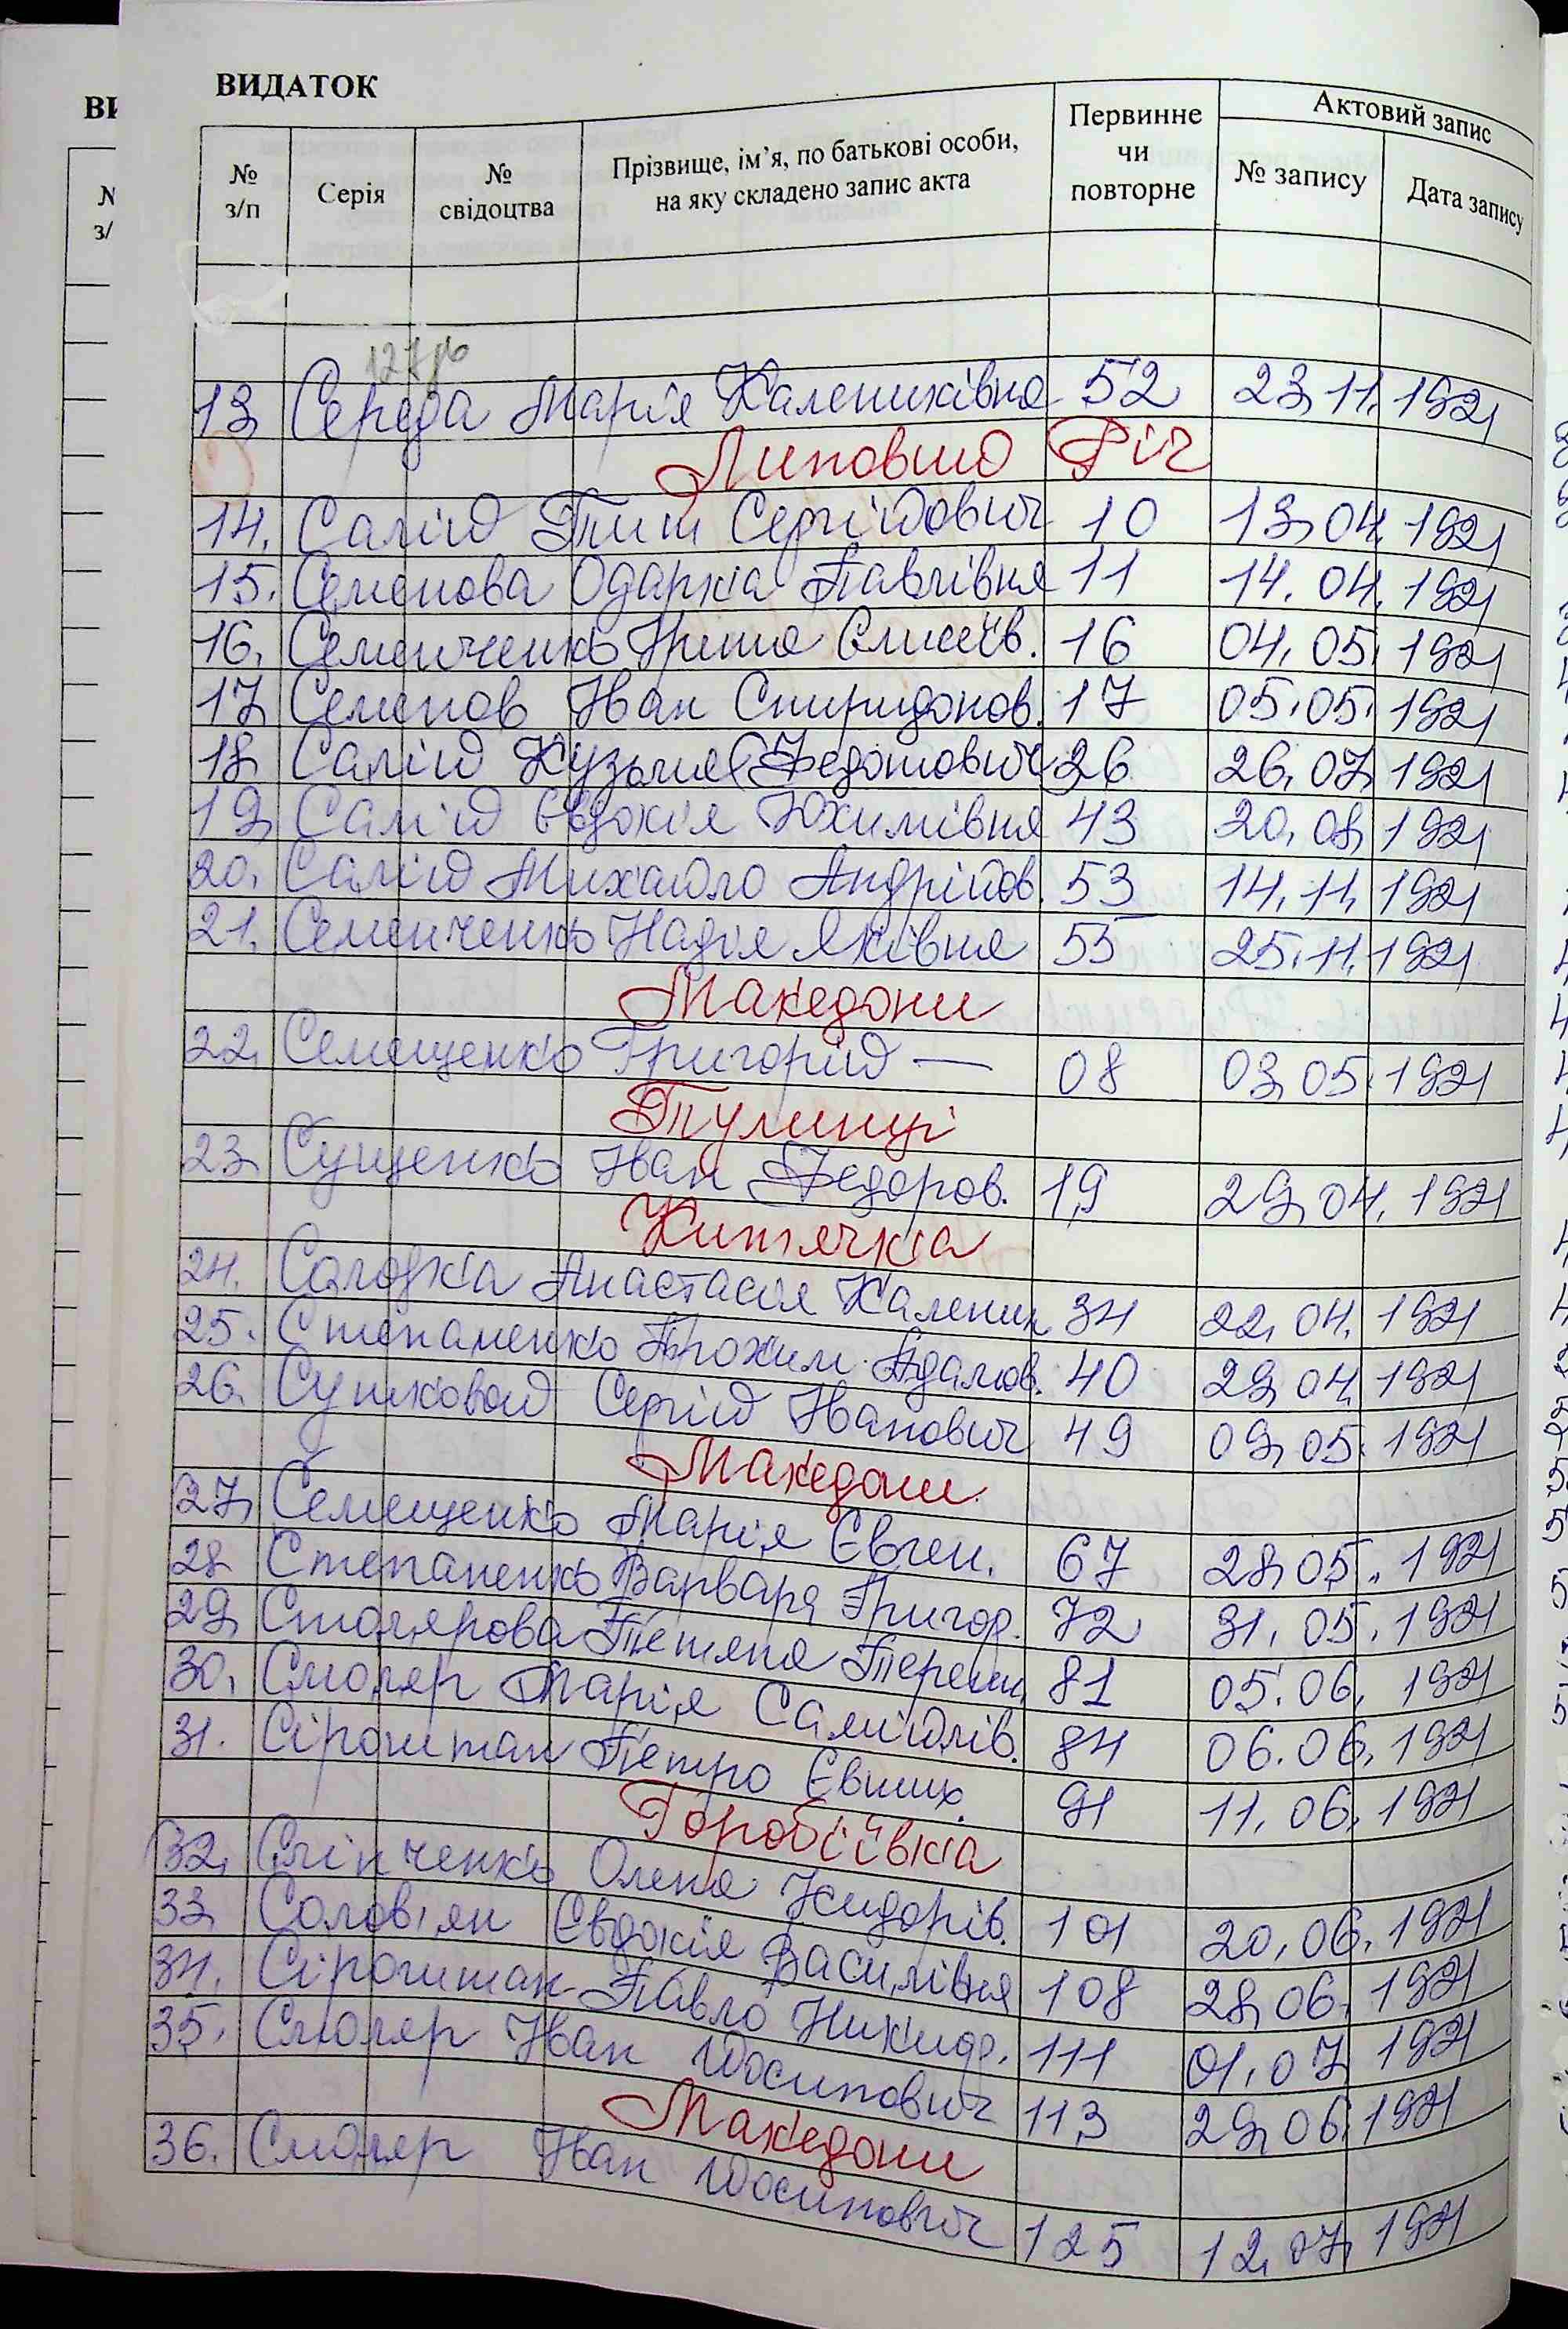 ВИДАТОК
№ з/п
Серія
№ свідоцтва
Прізвище, ім'я, по батькові особи, на яку складено запис акта
Первинне чи повторне
Актовий запис
№ запису
Дата запису
13. Середа Марія Калениківна 52 23.11.1921
Липовий Ріг
14. Салій Тит Сергійович 10 13.04.1921
15. Семенова Одарка Павлівна 11 14.04.1921
16. Семенченко Ірина Єлисеїв. 16 04.05.1921
17. Семенов Іван Спиридонов. 17 05.05.1921
18. Салій Кузьма Федотович 26 26.07.1921
19. Салій Євдокія Юхимівна 43 20.08.1921
20. Салій Михайло Андрійов. 53 14.11.1921
21. Семенченко Надія Яківна 55 25.11.1921
Македони
22. Семещенко Григорій — 08 03.05.1921
Тулинці
23. Сущенко Іван Федоров. 19 29.04.1921
Кип'ячка
24. Солодка Анастасія Каленик 34 22.04.1921
25. Степаненко Трохим Адамов. 40 29.04.1921
26. Сушковой Сергій Іванович 49 09.05.1921
Македони
27. Семещенко Марія Євген. 67 28.05.1921
28. Степаненко Варвара Григор. 72 31.05.1921
29. Столярова Тетяна Терешк. 81 05.06.1921
30. Смоляр Марія Самійлів. 84 06.06.1921
31. Сірогштан Петро Євтих. 91 11.06.1921
Горобіївка
32. Сліпченко Олена Сидорів. 101 20.06.1921
33. Солов'ян Євдокія Василівна 108 28.06.1921
34. Сірогштан Павло Никидр. 111 01.07.1921
35. Смоляр Іван Йосипович 113 29.06.1921
Македони
36. Смоляр Іван Йосипович 125 12.07.1921